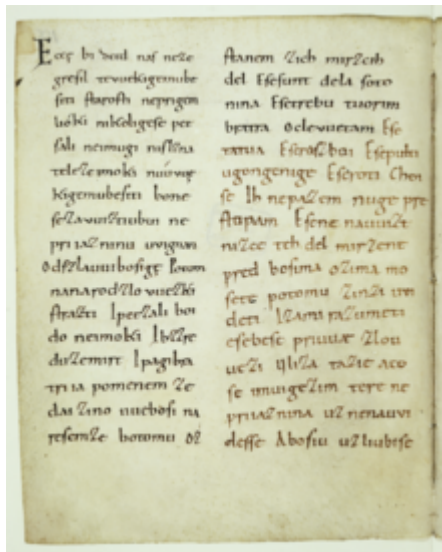 Ecce bi detd naſ neze
greſil tevuekigemube
ſiti ſtaroſti neprigem
lióki nikoligeſe pet
ſali neimugi niſlzna
telezeimoki nuúvuę
kigemubeſiti bone
ſezavuiztiubui ne
priiazninu uvignan
Odſzlauuiboſigę Potom
nanarodzlovuezki
ſtrazti Ipetzali boi
do neimoki Ibzzre
duzemirt Ipagibra
triia pomenem ze
dai zino uueboſi na
reſemze botomu oz
ſtanem zich mirzcih
del Eſeſunt dela ſoto
nina Eſetrebu tuorim
bratra Oclevuetam Eſe
tatua Eſerazboi Eſepulti
ugongenige Eſeroti Choi
ſe Ih nepazem nuge pre
ſtopam Eſene nauuizt
nizce teh del mirzene
pred boſima ozima mo
ſete potomu zinzi uvi
deti Izami razumeti
eſebeſe priuuæ zlou
uezi Uliza tazie aco
ſe imuigezim tere ne
priiaznina uznenauvi
deſſe Aboſiu uzliubiſe